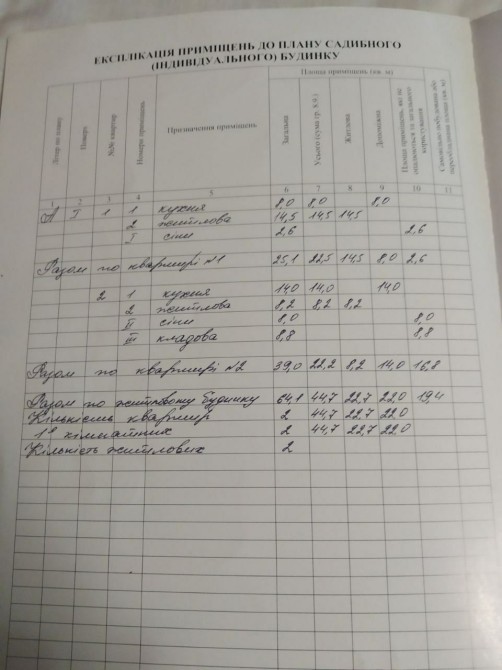 ЕКСПЛІКАЦІЯ ПРИМІЩЕНЬ ДО ПЛАНУ САДИБНОГО
(ІНДИВІДУАЛЬНОГО) БУДИНКУ
Літер по плану
Поверх
№№ квартир
Номери приміщень
Призначення приміщень
Площа приміщень (кв. м)
Загальна
Усього (сума гр. 8,9.)
Житлова
Допоміжна
Площа приміщень, які не опалюються та загального користування
1 2 3 4 5 6 7 8 9 10 11
А I 1 1 кухня 8,0 8,0 8,0
2 житлова 14,5 14,5 14,5
I сіни 2,6 2,6
Разом по квартирі №1 25,1 22,5 14,5 8,0 2,6
2 1 кухня 14,0 14,0 14,0
2 житлова 8,2 8,2 8,2
II сіни 8,0 8,0
III кладова 8,8 8,8
Разом по квартирі №2 39,0 22,2 8,2 14,0 16,8
Разом по житловому будинку 64,1 44,7 22,7 22,0 19,4
Кількість квартир 2 44,7 22,7 22,0
1о кімнатних 2 44,7 22,7 22,0
Кілсність житлових 2